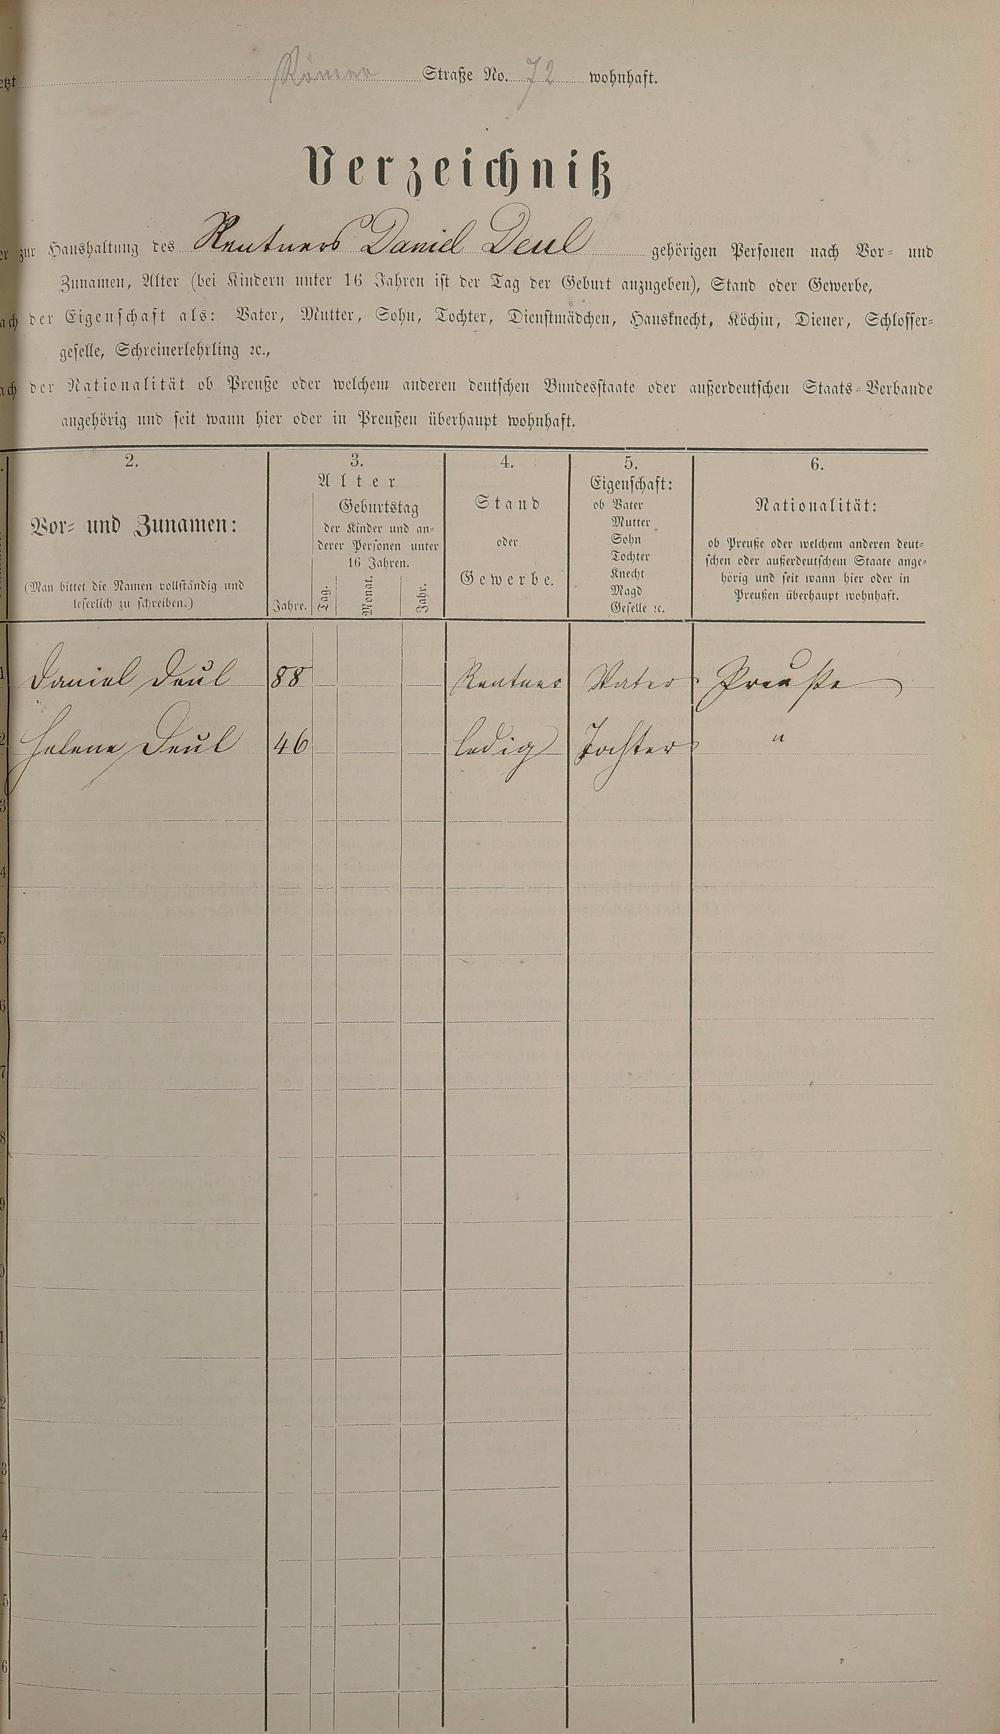 Römer Straße No. 72 wohnhaft.
Verzeichniß
zur Haushaltung des Rentners Daniel Deul gehörigen Personen nach Vor- und
Zunamen, Alter (bei Kindern unter 16 Jahren ist der Tag der Geburt anzugeben), Stand oder Gewerbe,
der Eigenschaft als: Vater, Mutter, Sohn, Tochter, Dienstmädchen, Hausknecht, Köchin, Diener, Schlosser-
geselle, Schreinerlehrling ꝛc.,
der Nationalität ob Preuße oder welchem anderen deutschen Bundesstaate oder außerdeutschen Staats-Verbande
angehörig und seit wann hier oder in Preußen überhaupt wohnhaft.
2.
Vor- und Zunamen:
(Man bittet die Namen vollständig und
leserlich zu schreiben.)
3.
Alter
Jahre.
Geburtstag
der Kinder und an-
derer Personen unter
16 Jahren.
Tag.
Monat.
Jahr.
4.
Stand
oder
Gewerbe.
5.
Eigenschaft:
ob Vater
Mutter
Sohn
Tochter
Knecht
Magd
Geselle ꝛc.
6.
Nationalität:
ob Preuße oder welchem anderen deut-
schen oder außerdeutschem Staate ange-
hörig und seit wann hier oder in
Preußen überhaupt wohnhaft.
1 Daniel Deul 88 Rentner Vater Preuße
2 Helene Deul 46 ledig Tochter "
3
4
5
6
7
8
9
0
1
2
3
4
5
6